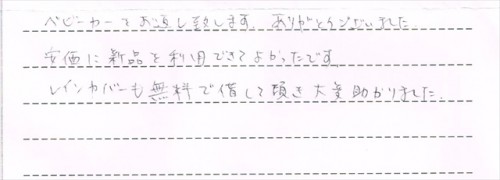 ベビーカーをお返し致します。ありがとうございました
安価に新品を利用できてよかったです。
レインカバーも無料で借して頂き大変助かりました。